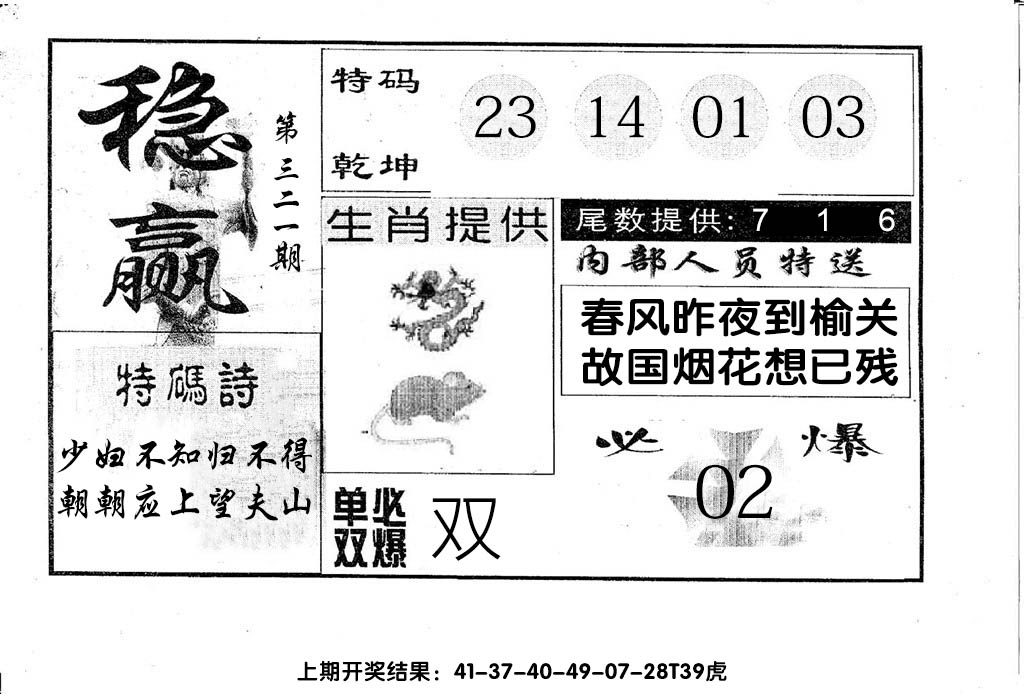 稳赢
第三二一期
特码
乾坤
23 14 01 03
生肖提供
尾数提供: 7 1 6
内部人员特送
春风昨夜到榆关
故国烟花想已残
特碼詩
少妇不知归不得
朝朝应上望夫山
必爆
02
单双
必爆
双
上期开奖结果：41-37-40-49-07-28T39虎